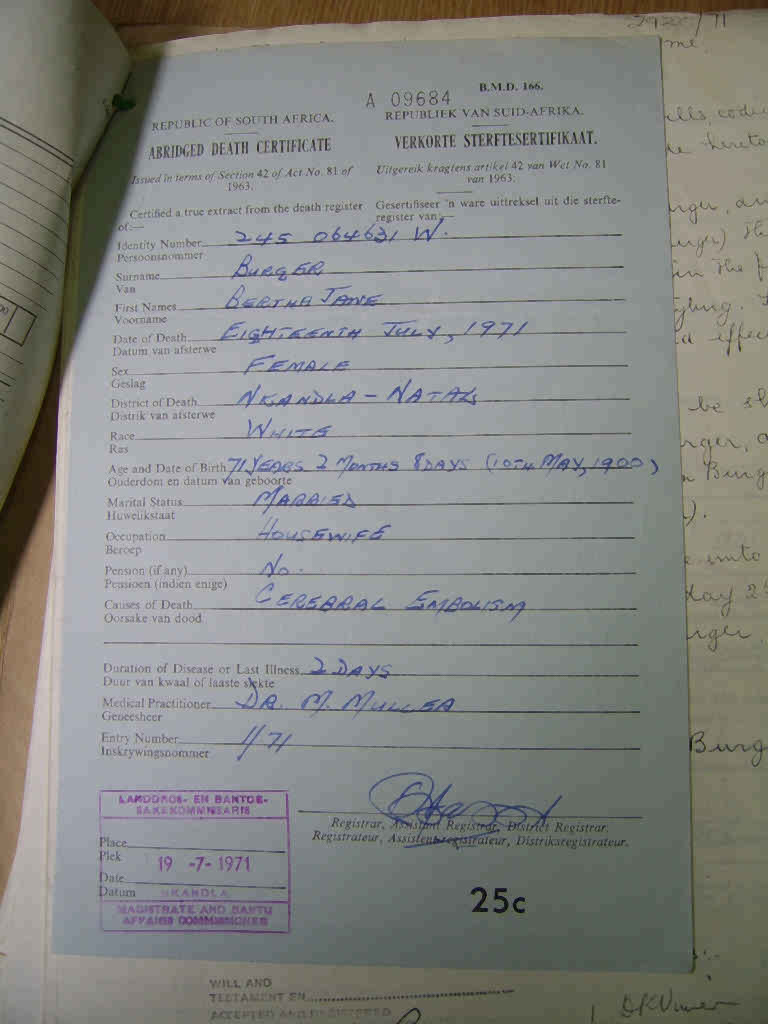 29 /71
me.
B.M.D. 166.
A 09684
REPUBLIC OF SOUTH AFRICA.
REPUBLIEK VAN SUID-AFRIKA.
ABRIDGED DEATH CERTIFICATE
VERKORTE STERFTESERTIFIKAAT.
Issued in terms of Section 42 of Act No. 81 of 1963.
Uitgereik kragtens artikel 42 van Wet No. 81 van 1963:
Certified a true extract from the death register of:—
Gesertifiseer 'n ware uittreksel uit die sterfte-register van:—
Identity Number 245 064631 W.
Persoonsnommer
Surname BURGER
Van
First Names BERTHA JANE
Voorname
Date of Death EIGHTEENTH JULY, 1971
Datum van afsterwe
Sex FEMALE
Geslag
District of Death NKANDLA - NATAL
Distrik van afsterwe
Race WHITE
Ras
Age and Date of Birth 71 YEARS 2 MONTHS 8 DAYS (10TH MAY, 1900)
Ouderdom en datum van geboorte
Marital Status MARRIED
Huwelikstaat
Occupation HOUSEWIFE
Beroep
Pension (if any) No.
Pensioen (indien enige)
Causes of Death CEREBRAL EMBOLISM
Oorsake van dood
Duration of Disease or Last Illness 2 DAYS
Duur van kwaal of laaste siekte
Medical Practitioner DR. M. MULLER
Geneesheer
Entry Number 11/71
Inskrywingsnommer
LANDDROS- EN BANTOE-
SAKEKOMMISSARIS
Place
Plek
19 -7- 1971
Date
Datum NKANDLA
MAGISTRATE AND BANTU
AFFAIRS COMMISSIONER
Registrar, Assistant Registrar, District Registrar.
Registrateur, Assistentregistrateur, Distriksregistrateur.
25c
WILL AND
TESTAMENT EN
ACCEPTED AND REGISTERED